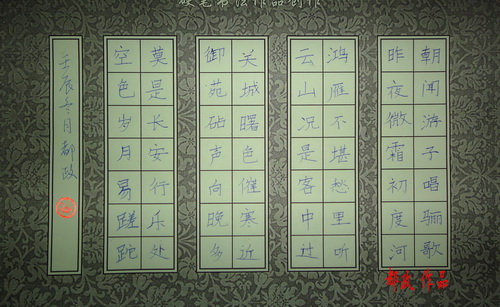 硬笔书法作品创作
朝闻游子唱骊歌
昨夜微霜初度河
鸿雁不堪愁里听
云山况是客中过
关城曙色催寒近
御苑砧声向晚多
莫是长安行乐处
空色岁月易蹉跎
壬辰月都政
作品